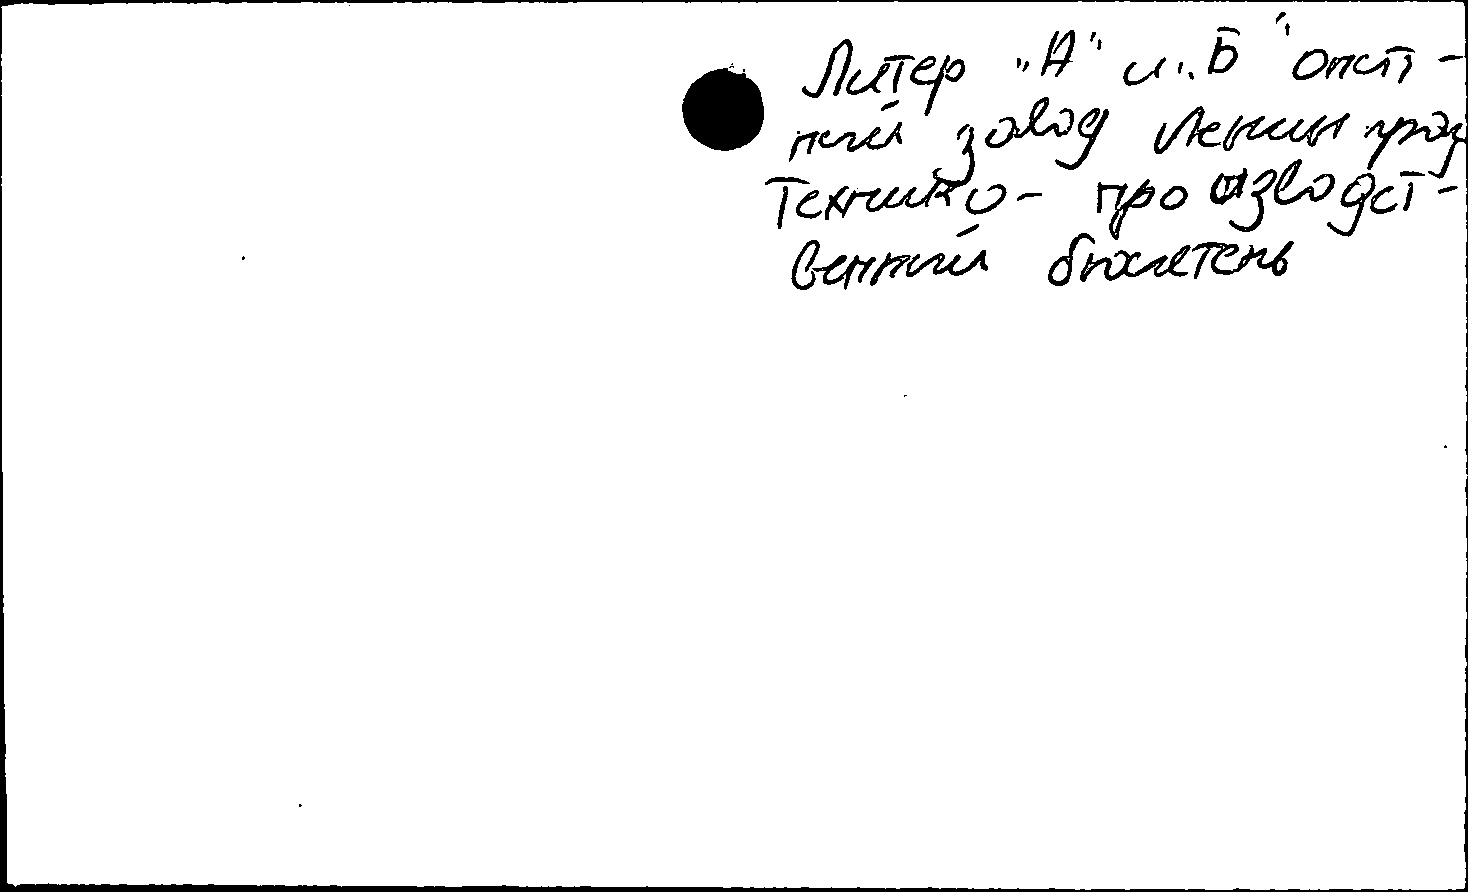 Литер "А" и "Б" опыт-
ный завод Ленинград
Технико-производст-
венный бюллетень